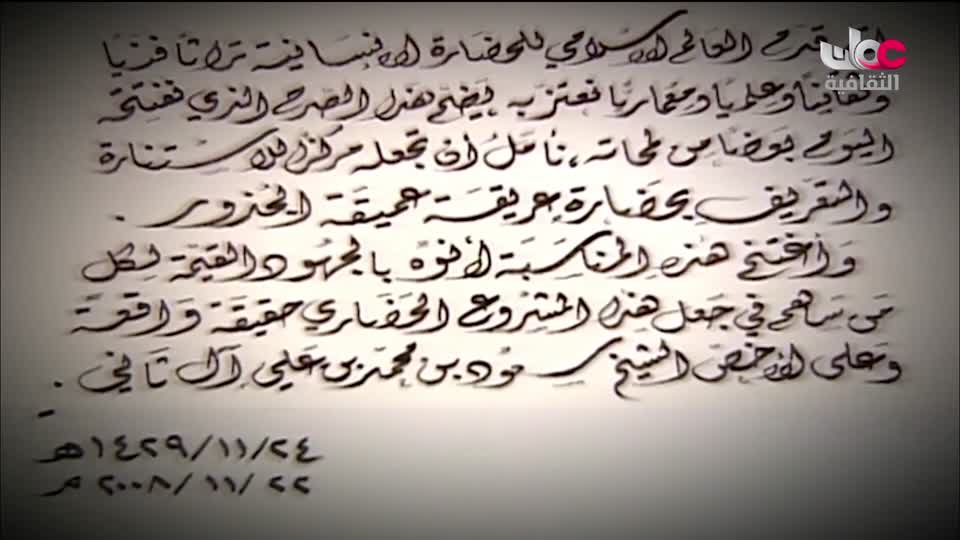 لقد قدم العالم الإسلامي للحضارة الإنسانية تراثا فنيًا
وثقافيًا وعلميًا ومعماريًا نعتز به ليضم هذا الصرح الذي نفتتحه
اليوم بعضا من لمحاته، نأمل أن نجعله مركزا للاستنارة
والتعريف بحضارة عريقة عميقة الجذور.
وأغتنم هذه المناسبة لأنوّه بالجهود القيمة لكل
من ساهم في جعل هذا المشروع الحضاري حقيقة واقعة
وعلى الأخص الشيخ سعود بن محمد بن علي آل ثاني.
١٤٢٩/١١/٢٤هـ
٢٠٠٨/١١/٢٢م
الثقافية